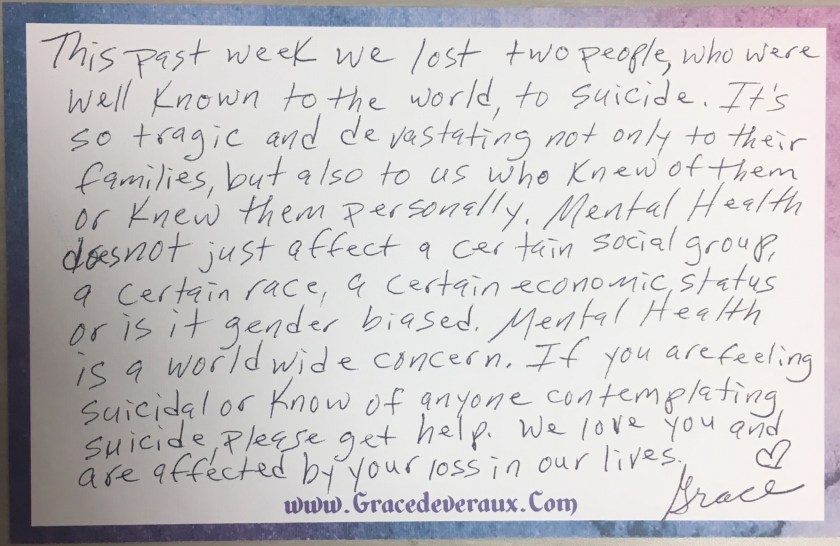 This past week we lost two people, who were
well known to the world, to suicide. It's
so tragic and devastating not only to their
families, but also to us who knew of them
or knew them personally. Mental Health
does not just affect a certain social group,
a certain race, a certain economic status
or is it gender biased. Mental Health
is a worldwide concern. If you are feeling
suicidal or know of anyone contemplating
suicide, please get help. We love you and
are affected by your loss in our lives.
Grace
www.Gracedeveraux.Com